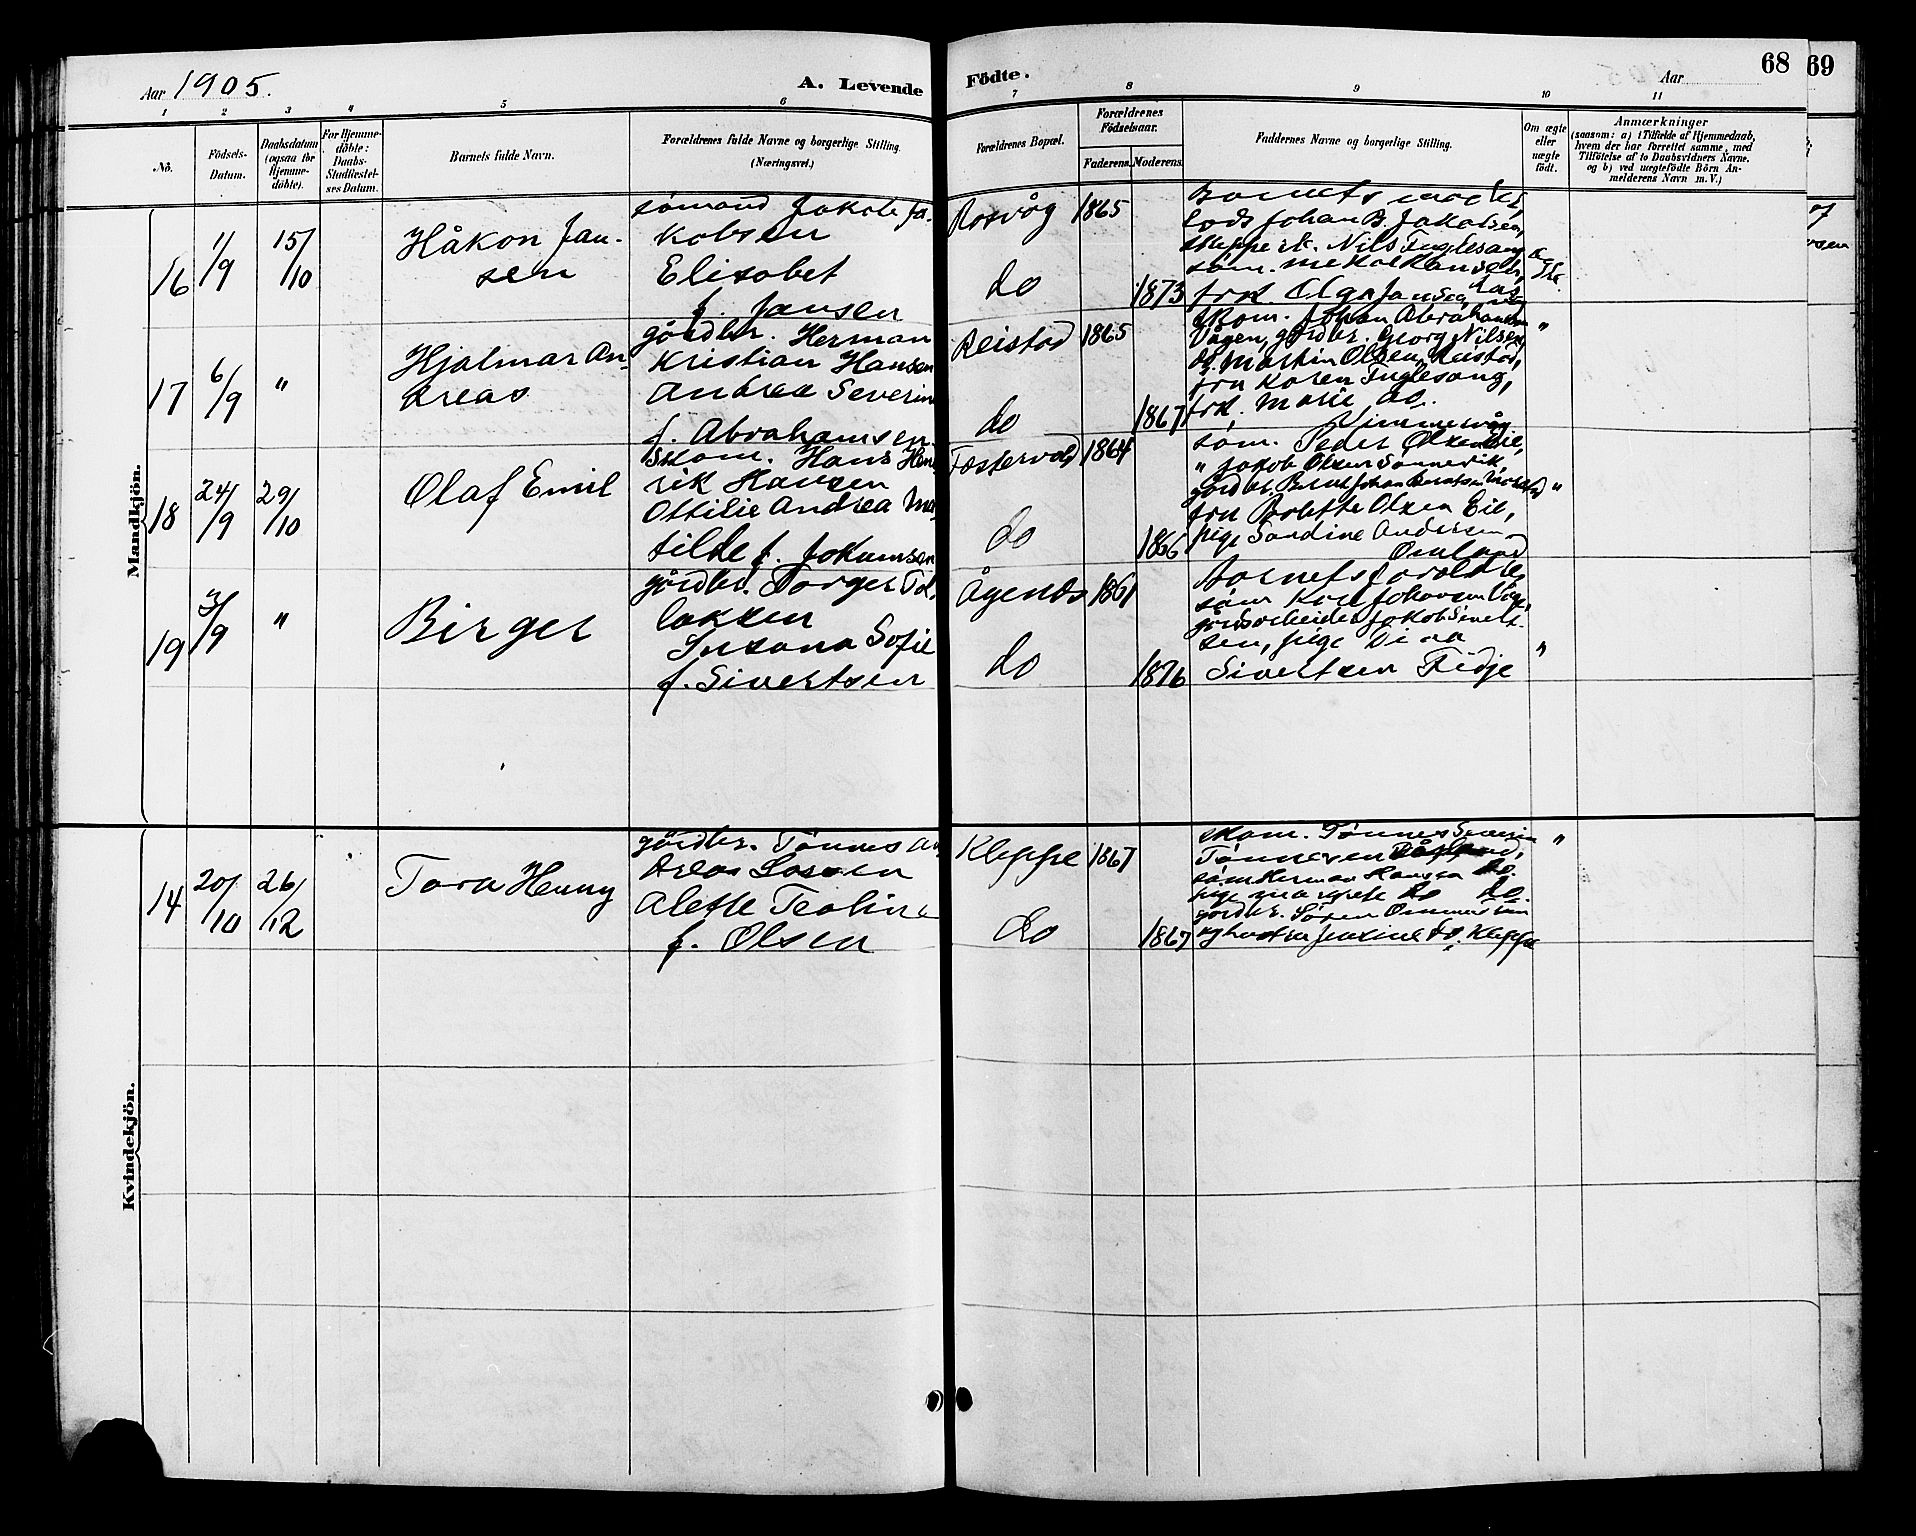 Aar 1905.
A. Levende
Födte.
Aar
68
69
1 2 3 4 5 6 7 8 9 10 11
No.
Födsels-
Datum.
Daabsdatum
(ogsaa for
Hjemme-
döbte).
For Hjemme-
döbte:
Daabs-
Stadfæstel-
ses Datum.
Barnets fulde Navn.
Forældrenes fulde Navne og borgerlige Stilling.
(Næringsvei.)
Forældrenes Bopæl.
Forældrenes
Födselsaar.
Faderens. Moderens.
Faddernes Navne og borgerlige Stilling.
Om ægte
eller
uægte
født.
Anmærkninger
(saasom: a) i Tilfælde af Hjemmedaab,
hvem der har forrettet samme, med
Tilföielse af to Daabsvidners Navne.
og b) ved uægtefödte Börn An-
melderens Navn m.V.)
Mandkjön.
16 1/9 15/10
Håkon Jan-
sen
sømand Jakob Ja-
kobsen
Elisabet
f. Jansen
Rosvåg 1865
do 1873
Barnets mor
lods Johan B. Jakobsen,
Nils Fuglesang
søm.
frk. Olga Jansen
17 6/9 "
Hjalmar An-
dreas
gårdbr. Herman
Kristian Hansen
Andrea Severine
f. Abrahamsen
Reistad 1865
do 1867
Johan Abrahamsen
Vågen, gårdbr. Georg Nilsen,
Martin Olsen, Reistad,
fru Karen Fuglesang,
frk. Marie do.
"
18 24/9 29/10
Olaf Emil
Skom. Hans Hen-
rik Hansen
Ottilie Andrea Ma-
tilde f. Johansen
Fastervold 1864
do 1866
søm. Peder Olsen Eie,
" Jakob Olsen
gårdbr. Johan
fru Bolette Olsen Eie,
pige Sandine Andersen
Omland
"
19 3/9 "
Birger
gårdbr. Torger Tol-
laksen
Susana Sofie
f. Sivertsen
Ågenes 1861
do 1876
Barnets foreldre,
søm Johansen
Jakob Sivert-
sen, pige Dina
Sivertsen Fidje
"
Kvindekjön.
14 20/10 26/12
Tora Henny
gårdbr. Tønnes An-
dreas Larsen
Alette Teoline
f. Olsen
Kleppe 1867
do 1867
skom. Tønnes Severin
Tønnesen
søm Herman Hansen do.
pige Margrete do do.
gårdbr. Søren Ommundsen
og hustru Jensine do. Kleppe
"